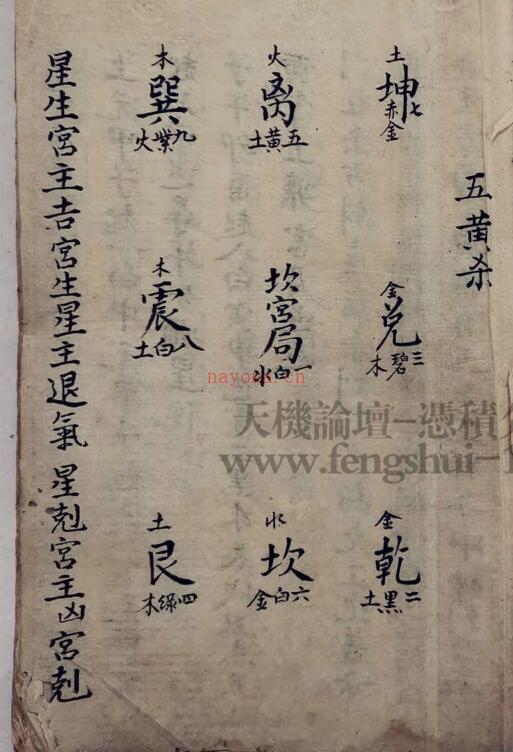 五黄杀
土
坤
七赤金
金
兑
三碧木
金
乾
二黑土
火
离
五黄土
坎宮局
一白水
水
坎
六白金
木
巽
九紫火
木
震
八白土
土
艮
四綠木
星生宮主吉宮生星主退氣 星剋宮主凶宮剋
nayona.cn
天機論壇-憑積分
www.fengshui-1